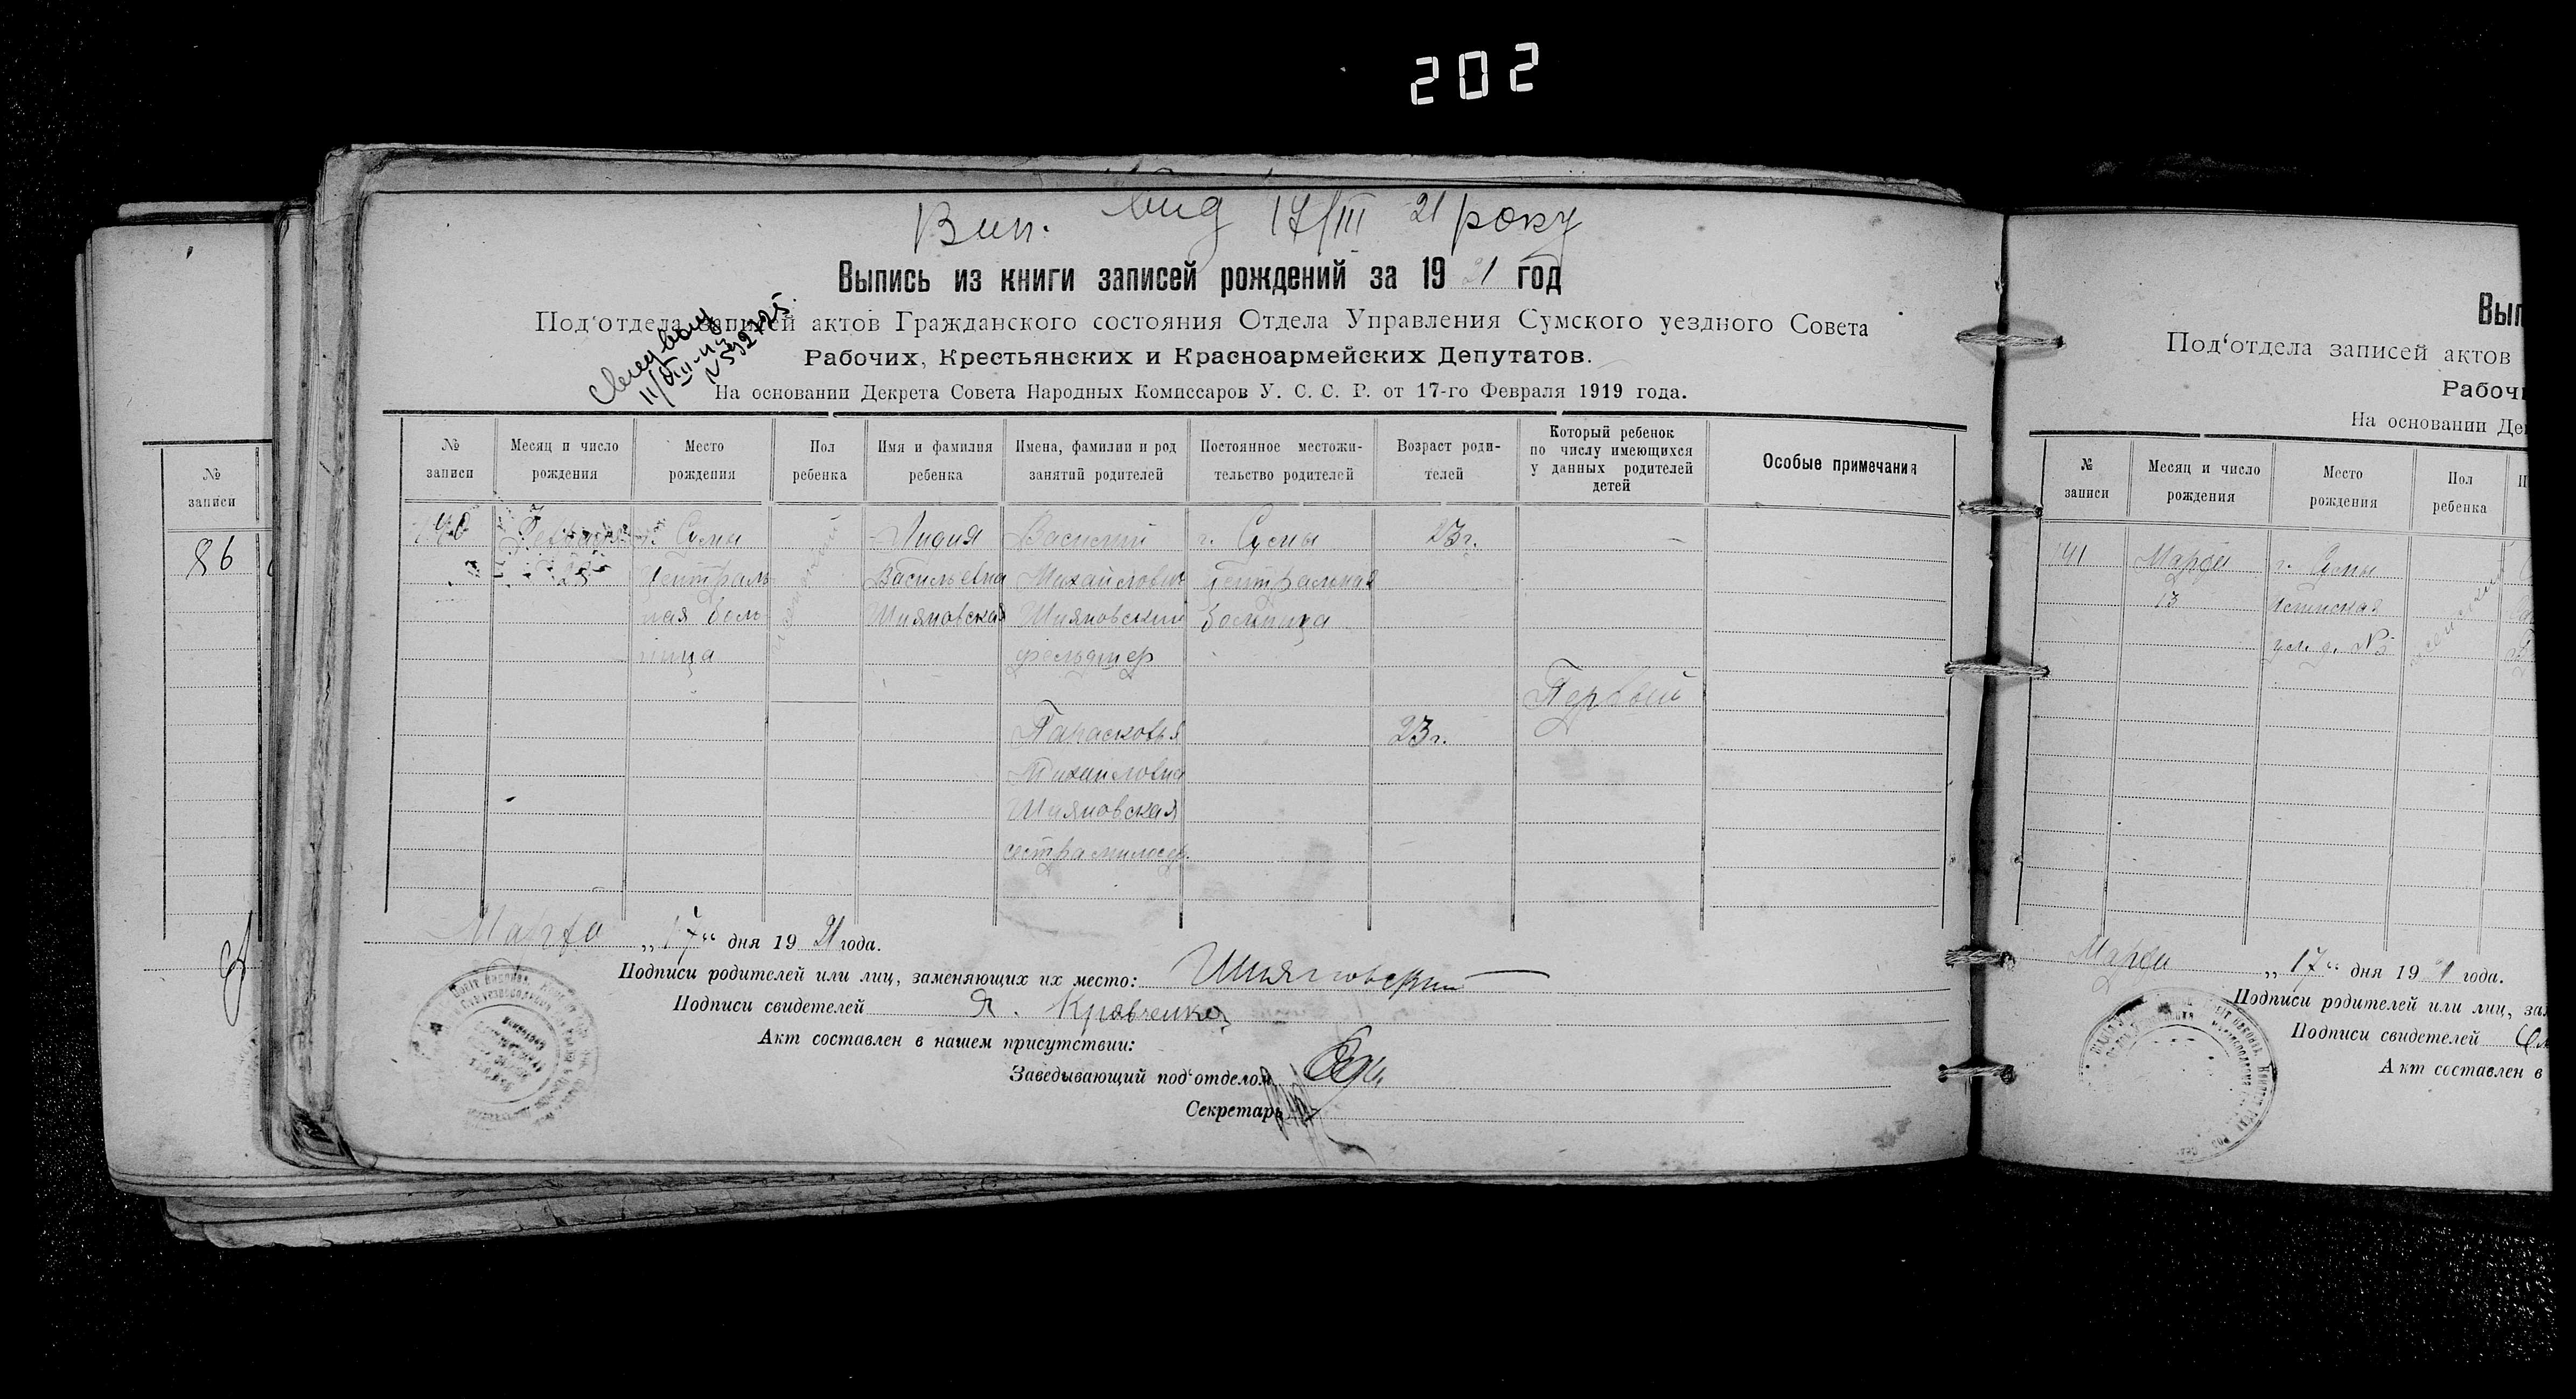 202
Вип. вид 17/III 21 року
Выпись из книги записей рождений за 1921 год
Под‘отдела записей актов Гражданского состояния Отдела Управления Сумского уездного Совета
Рабочих, Крестьянских и Красноармейских Депутатов.
На основании Декрета Совета Народных Комиссаров У. С. С. Р. от 17-го Февраля 1919 года.
№ записи
Месяц и число рождения
Место рождения
Пол ребенка
Имя и фамилия ребенка
Имена, фамилии и род занятий родителей
Постоянное местожительство родителей
Возраст родителей
Который ребенок по числу имеющихся у данных родителей детей
Особые примечания
140
Февраля
25
г. Сумы
Централь
ная боль
ница
женский
Лидия
Васильевна
Шияновская
Василий
Михайлович
Шияновский
фельдшер
г. Сумы
Центральная
больница
23 г.
Парасковья
Михайловна
Шияновская
сестра милосер.
23 г.
Первый
Марта „17“ дня 1921 года.
Подписи родителей или лиц, заменяющих их место: Шияновский
Подписи свидетелей Я. Кравченко
Акт составлен в нашем присутствии:
Заведывающий под‘отделом
Секретарь
№ записи
86
Вып
Под‘отдела записей актов
Рабочи
На основании Де
№ записи
Месяц и число рождения
Место рождения
Пол ребенка
141
Марта
13
г. Сумы
женский
Марта „17“ дня 1921 года.
Подписи родителей или лиц, за
Подписи свидетелей
Акт составлен в